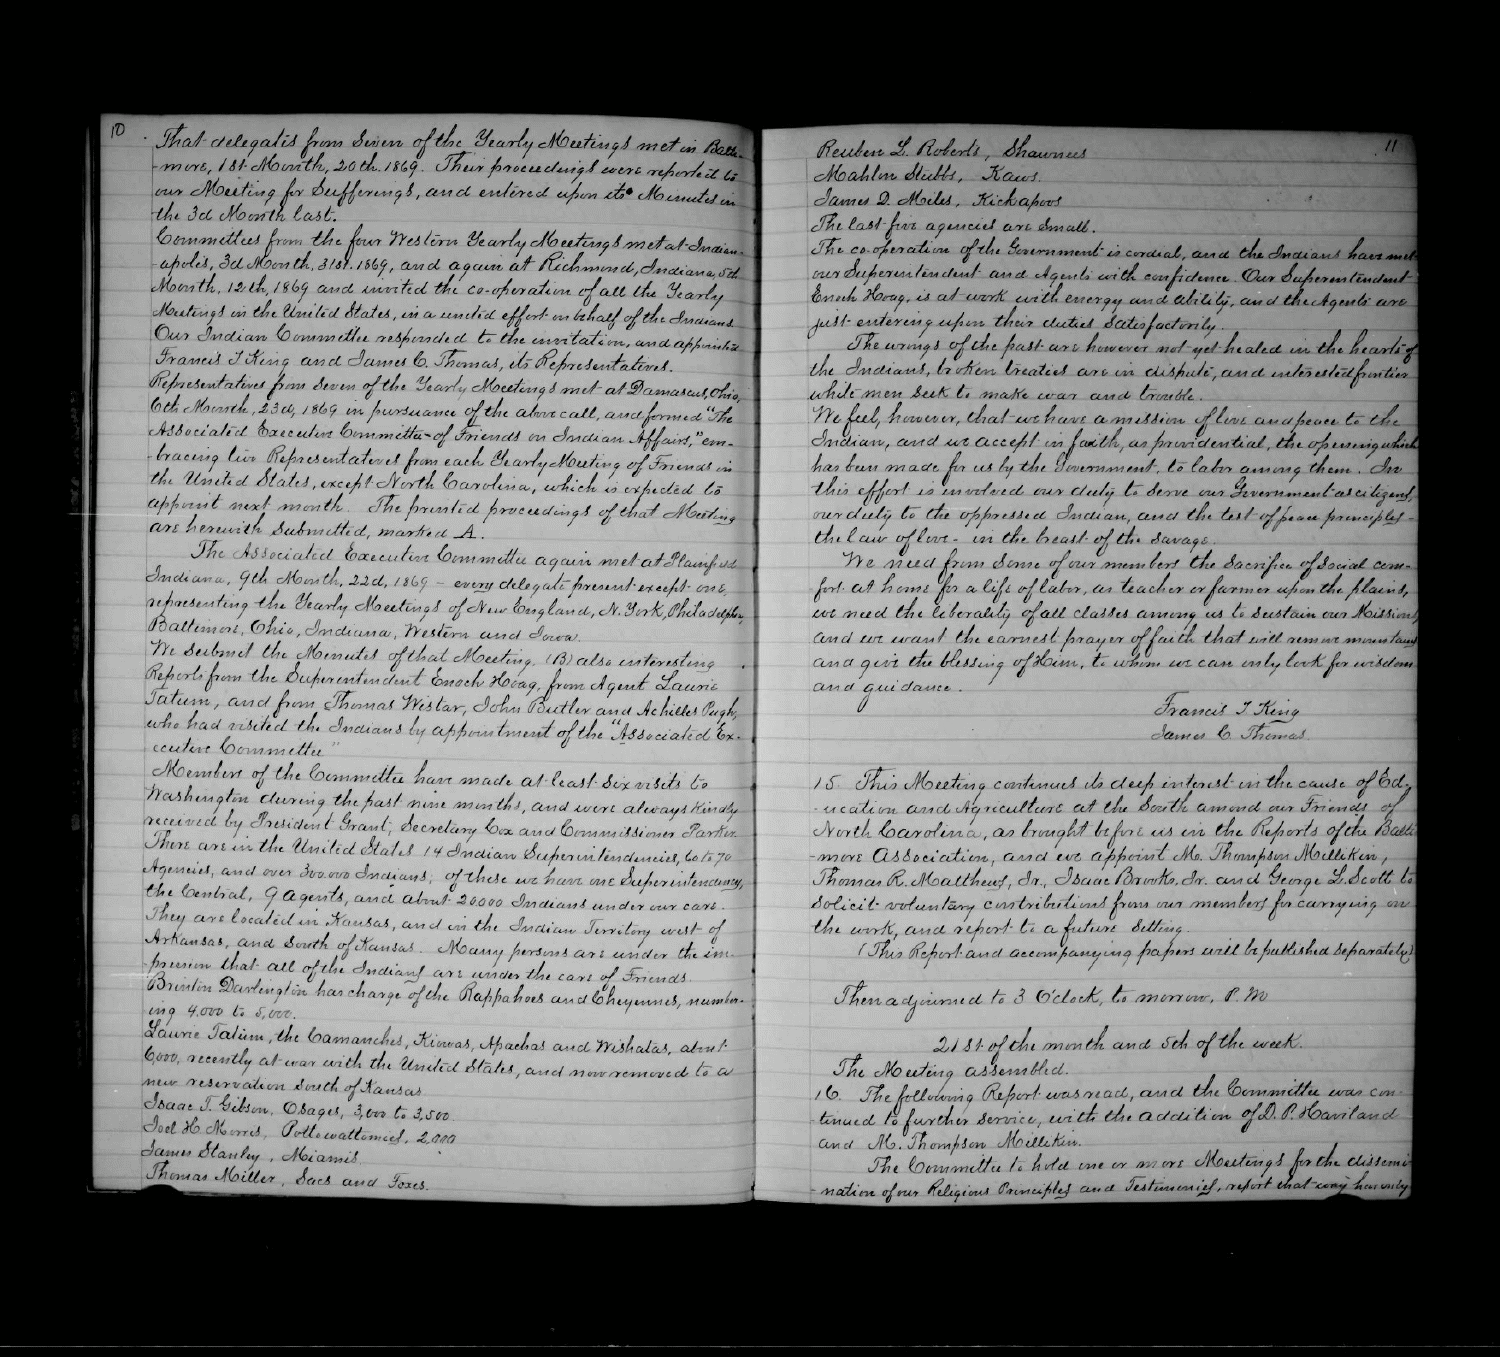 10
That delegates from Seven of the Yearly Meetings met in Balti-
-more, 1st Month, 20th. 1869. Their proceedings were reported to
our Meeting for Sufferings, and entered upon its Minutes in
the 3d Month last.
Committees from the four Western Yearly Meetings met at Indian-
-apolis, 3d Month, 31st. 1869, and again at Richmond, Indiana, 5th
Month, 12th, 1869 and invited the co-operation of all the Yearly
Meetings in the United States, in a united effort on behalf of the Indians.
Our Indian Committee responded to the invitation, and appointed
Francis T King and James C. Thomas, its Representatives.
Representatives from Seven of the Yearly Meetings met at Damascus, Ohio,
6th Month, 23d, 1869 in pursuance of the above call, and formed "The
Associated Executive Committee of Friends on Indian Affairs," em-
-bracing two Representatives from each Yearly Meeting of Friends in
the United States, except North Carolina, which is expected to
appoint next month. The printed proceedings of that Meeting
are herewith submitted, marked A.
The Associated Executive Committee again met at Plainfield
Indiana, 9th Month, 22d, 1869 - every delegate present except one,
representing the Yearly Meetings of New England, N. York, Philadelphia,
Baltimore, Ohio, Indiana, Western and Iowa.
We submit the Minutes of that Meeting. (B) also interesting
Reports from the Superintendent Enoch Hoag, from Agent Laurie
Tatum, and from Thomas Wistar, John Butler and Achilles Pugh,
who had visited the Indians by appointment of the "Associated Ex-
-ecutive Committee"
Members of the Committee have made at least six visits to
Washington during the past nine months, and were always kindly
received by President Grant, Secretary Cox and Commissioner Parker
There are in the United States 14 Indian Superintendencies, 60 to 70
Agencies, and over 300.000 Indians, of these we have one Superintendency,
the Central, 9 Agents, and about 20000 Indians under our care.
They are located in Kansas, and in the Indian Territory west of
Arkansas, and South of Kansas. Many persons are under the im-
-pression that all of the Indians are under the care of Friends.
Brinton Darlington has charge of the Rappahoes and Cheyennes, number-
-ing 4.000 to 5,000.
Laurie Tatum, the Camanches, Kiowas, Apachas and Wishatas, about
6,000, recently at war with the United States, and now removed to a
new reservation South of Kansas
Isaac T. Gibson, Osages, 3,000 to 3,500.
Joel H. Morris, Pottowattomies, 2,000
James Stanley, Miamis
Thomas Miller, Sacs and Foxes.
11
Reuben L. Roberts, Shawnees
Mahlon Stubbs, Kaws.
James D. Miles, Kickapoos
The last five agencies are small.
The co-operation of the Government is cordial, and the Indians have met
our Superintendent and Agents with confidence. Our Superintendent
Enoch Hoag, is at work with energy and ability, and the Agents are
just entering upon their duties satisfactorily.
The wrongs of the past are however not yet healed in the hearts of
the Indians, broken treaties are in dispute, and interested frontier
white men seek to make war and trouble.
We feel, however, that we have a mission of love and peace to the
Indian, and we accept in faith, as providential, the opening which
has been made for us by the Government, to labor among them. In
this effort is involved our duty to serve our Government as citizens,
our duty to the oppressed Indian, and the test of peace principles -
the law of love - in the breast of the savage.
We need from some of our members the sacrifice of social com-
fort at home for a life of labor, as teacher or farmer upon the plains,
we need the liberality of all classes among us to sustain our Missions,
and we want the earnest prayer of faith that will remove mountains
and give the blessing of Him, to whom we can only look for wisdom
and guidance.
Francis T King
James C Thomas.
15. This Meeting continues its deep interest in the cause of Ed-
-ucation and Agriculture at the South amond our Friends of
North Carolina, as brought before us in the Reports of the Balti-
-more Association, and we appoint M. Thompson Millikin,
Thomas R. Matthews, Jr., Isaac Brooks, Jr. and George L. Scott to
solicit voluntary contributions from our members for carrying on
the work, and report to a future sitting.
(This Report and accompanying papers will be published separately)
Then adjourned to 3 O'clock, to morrow, P. M
21st of the month and 5th of the week.
The Meeting assembled.
16. The following Report was read, and the Committee was con-
-tinued to further service, with the addition of D. P. Haviland
and M. Thompson Millikin.
The Committee to hold one or more Meetings for the dissemi-
-nation of our Religious Principles and Testimonies, report that way has only